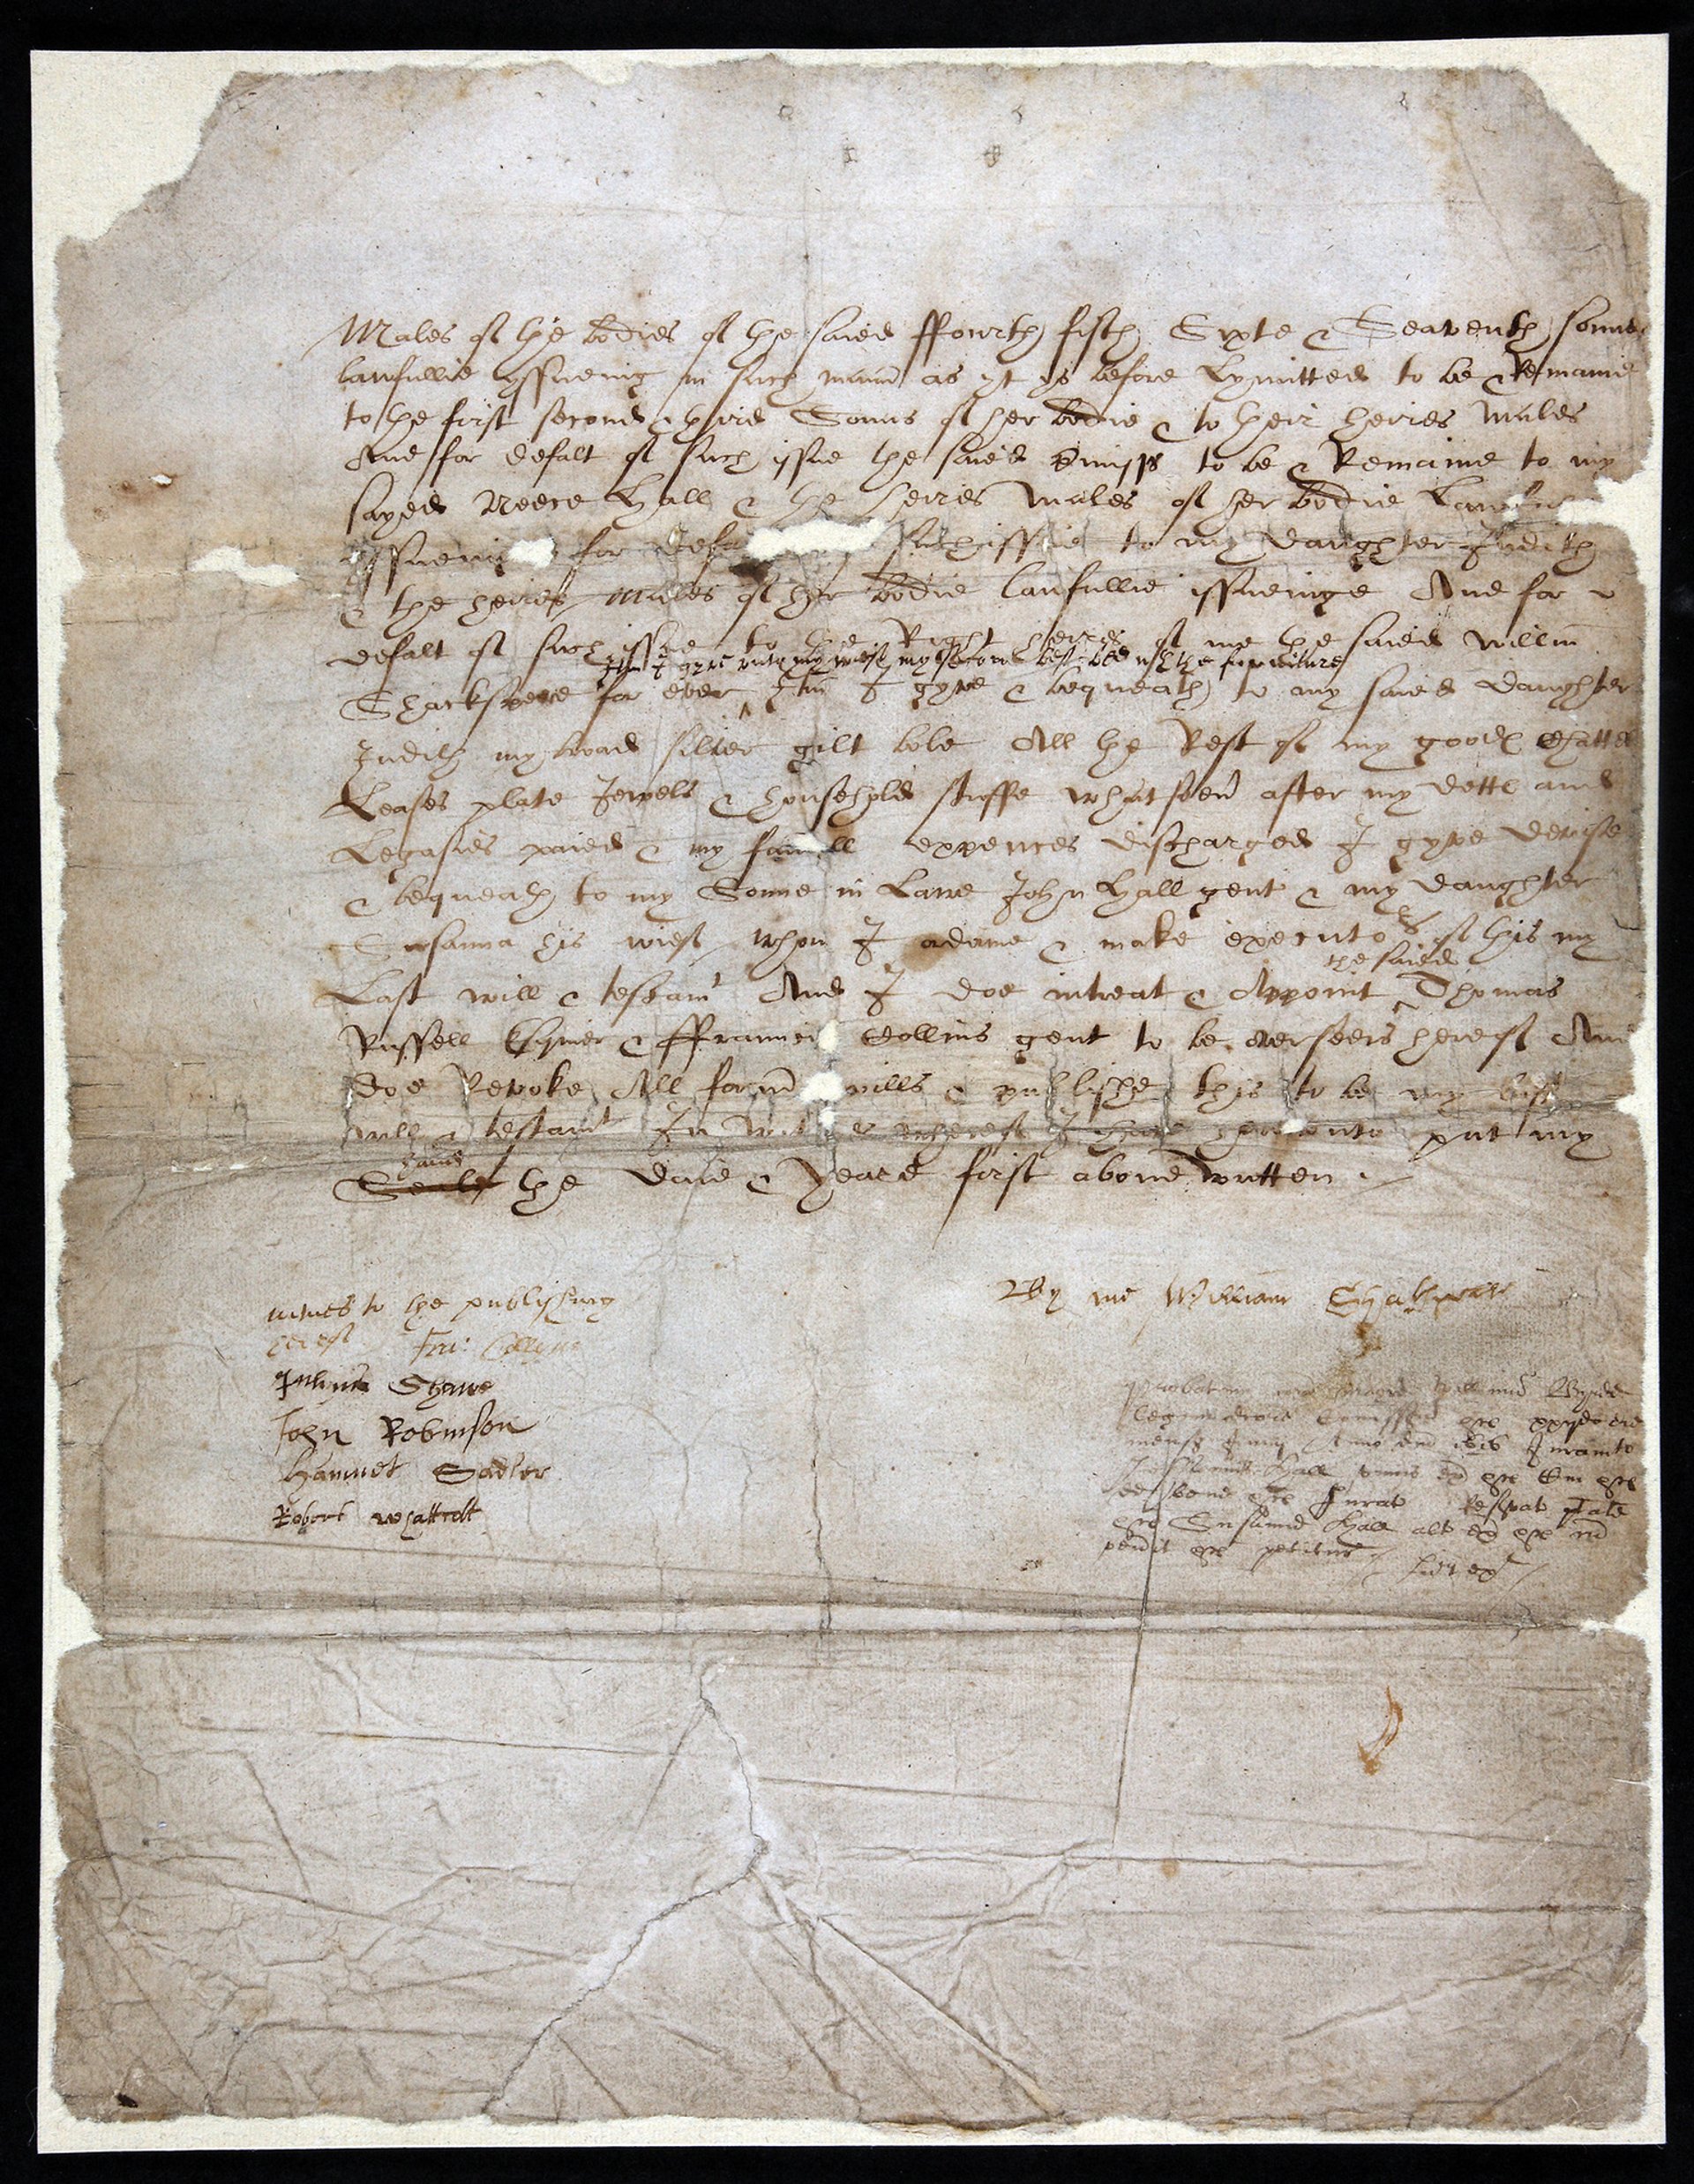 Males of the bodies of the saied ffourth fifth Sixte & Seaventh sonnes
lawfullie yssueing in such manner as yt ys before Lymitted to be & Remaine
to the first second & third Sonns of her bodie & to their heires Males
And for defalt of such issue the saied premisses to be & Remaine to my
sayed Neece Hall & the heires Males of her bodie Lawfull
yssueing for defa such issue to my daughter Judith
& the heires Males of her bodie lawfullie issueinge And for
defalt of such issue to the Right heires of me the saied willm
Itm I gyve unto my wief my second best bed wth the furniture
Shackspere for ever Itm I gyve & bequeath to my saied daughter
Judith my broad silver gilt bole All the Rest of my goodes Chattel
Leases plate Jewels & household stuffe whatsoever after my dettes and
Legasies paied & my funerall expences discharged I gyve devise
& bequeath to my Sonne in Lawe John Hall gent & my daughter
Susanna his wief whom I ordaine & make executors of this my
the saied
Last will & testamt And I doe intreat & Appoint Thomas
Russell Esquier & ffrauncis Collins gent to be overseers hereof And
doe Revoke All former wills & publishe this to be my last
will & testamt In witnes whereof I have hereunto put my
hand
Seale the daie & Yeare first above written
By me William Shakspeare
witnes to the publishing
hereof Fra: Collyns
Julyus Shawe
John Robinson
Hamnet Sadler
Robert Whattcott
Probatum Magro Willmo Byrde
legum dcore Comissar
mens Junij Anno dni 1616 Juramto
Johannis Hall unius ex
de bene Jurat Resvat ptate
Susanne Hall alt ex
petitur
Inv ex